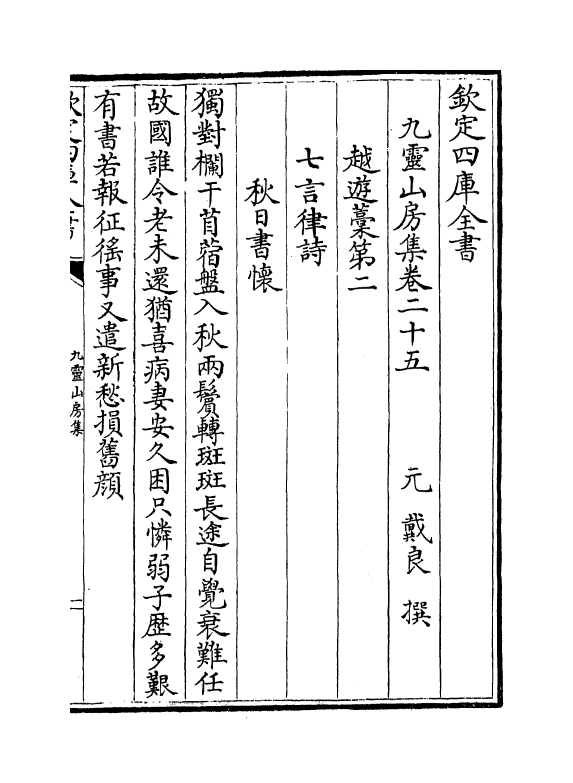 欽定四庫全書
九靈山房集卷二十五　元　戴良　撰
越遊藁第二
七言律詩
秋日書懷
獨對欄干苜蓿盤入秋兩鬢轉斑斑長途自覺衰難任
故國誰令老未還猶喜病妻安久困只憐弱子歷多艱
有書若報征徭事又遣新愁損舊顔
欽定四庫全書
九靈山房集